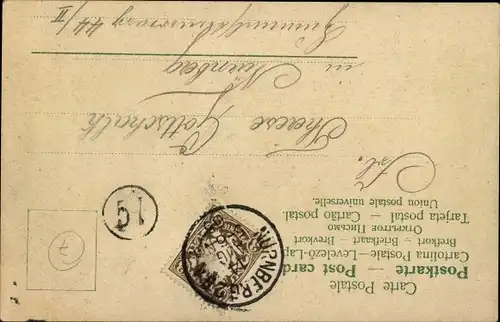 Carte Postale
Postkarte — Post card
Cartolina Postale — Levelező-Lap
Brefkort — Briefkaart — Brevkort
Открытое Письмо
Tarjeta postal — Cartão postal.
Union postale universelle.
Frl.
Therese
Gottschalk
in
Nürnberg
44/II
NÜRNBERG
51
7